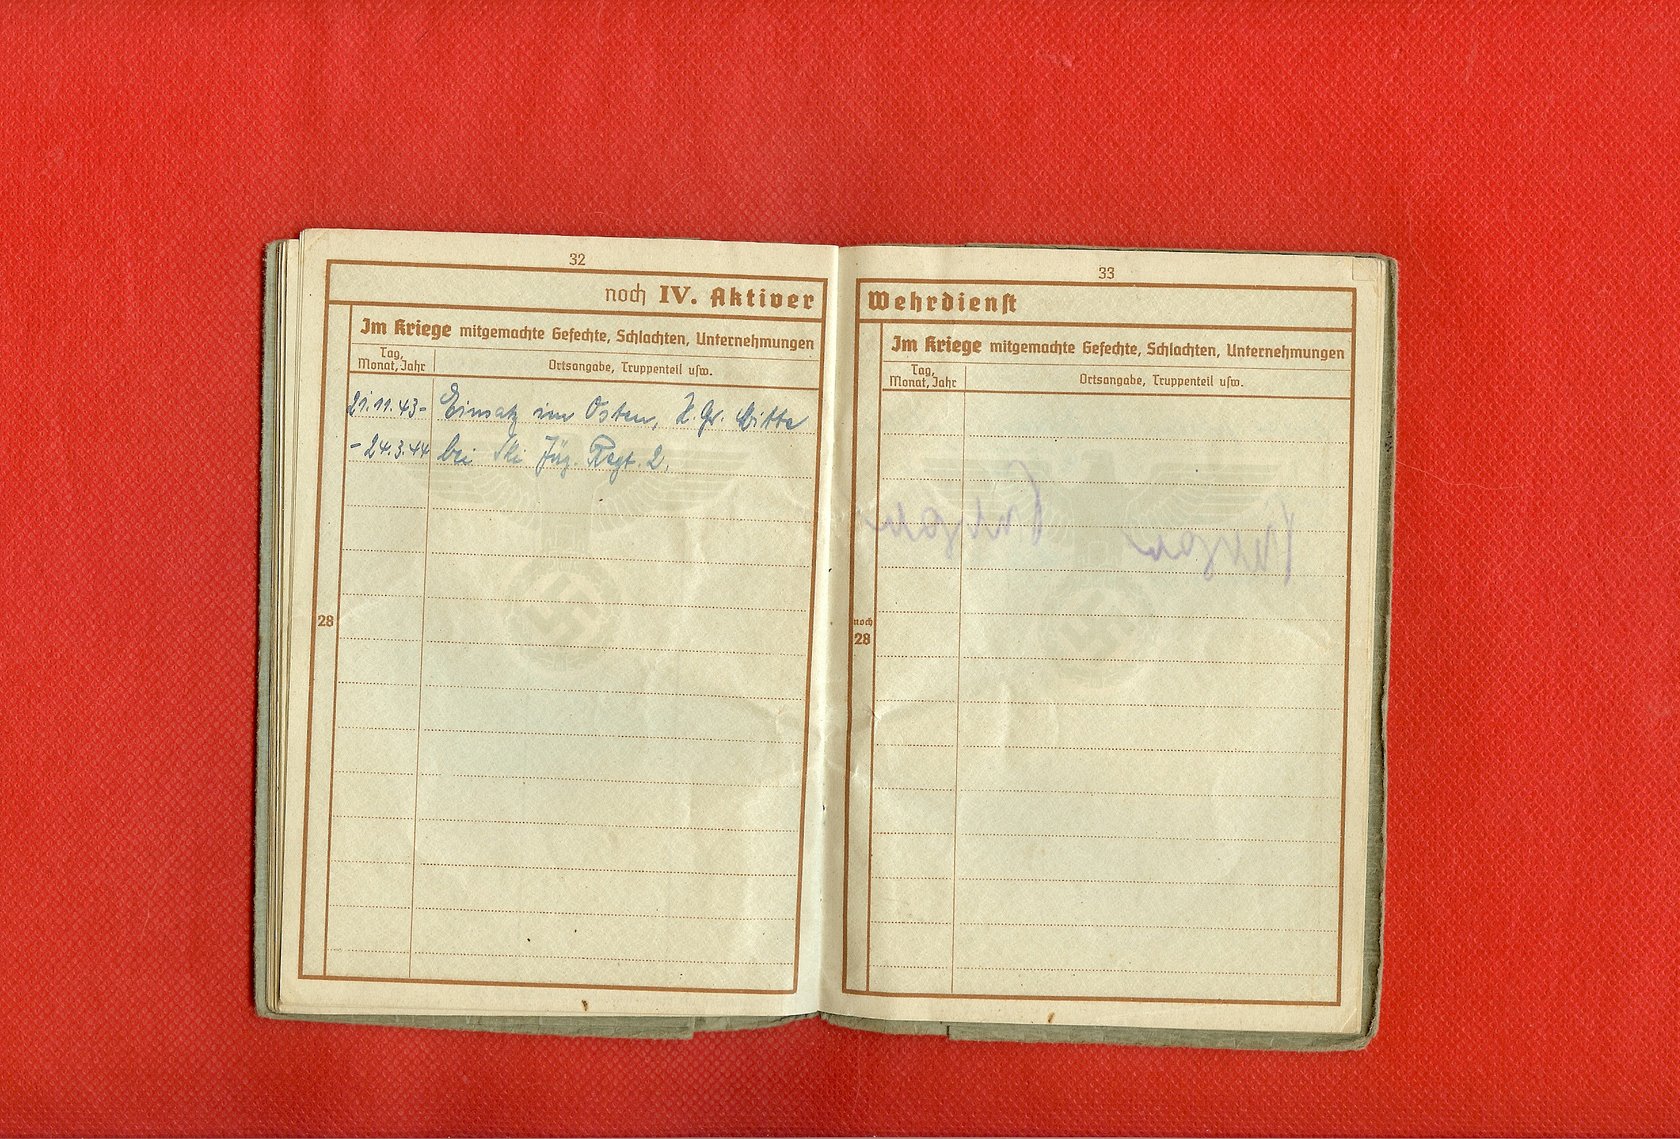 32
noch IV. Aktiver
Im Kriege mitgemachte Gefechte, Schlachten, Unternehmungen
Tag,
Monat, Jahr
Ortsangabe, Truppenteil usw.
21.11.43- Einsatz im Osten, H. Gr. Mitte
-24.3.44 bei Ski Jäg. Regt. 2.
28
33
Wehrdienst
Im Kriege mitgemachte Gefechte, Schlachten, Unternehmungen
Tag,
Monat, Jahr
Ortsangabe, Truppenteil usw.
noch
28